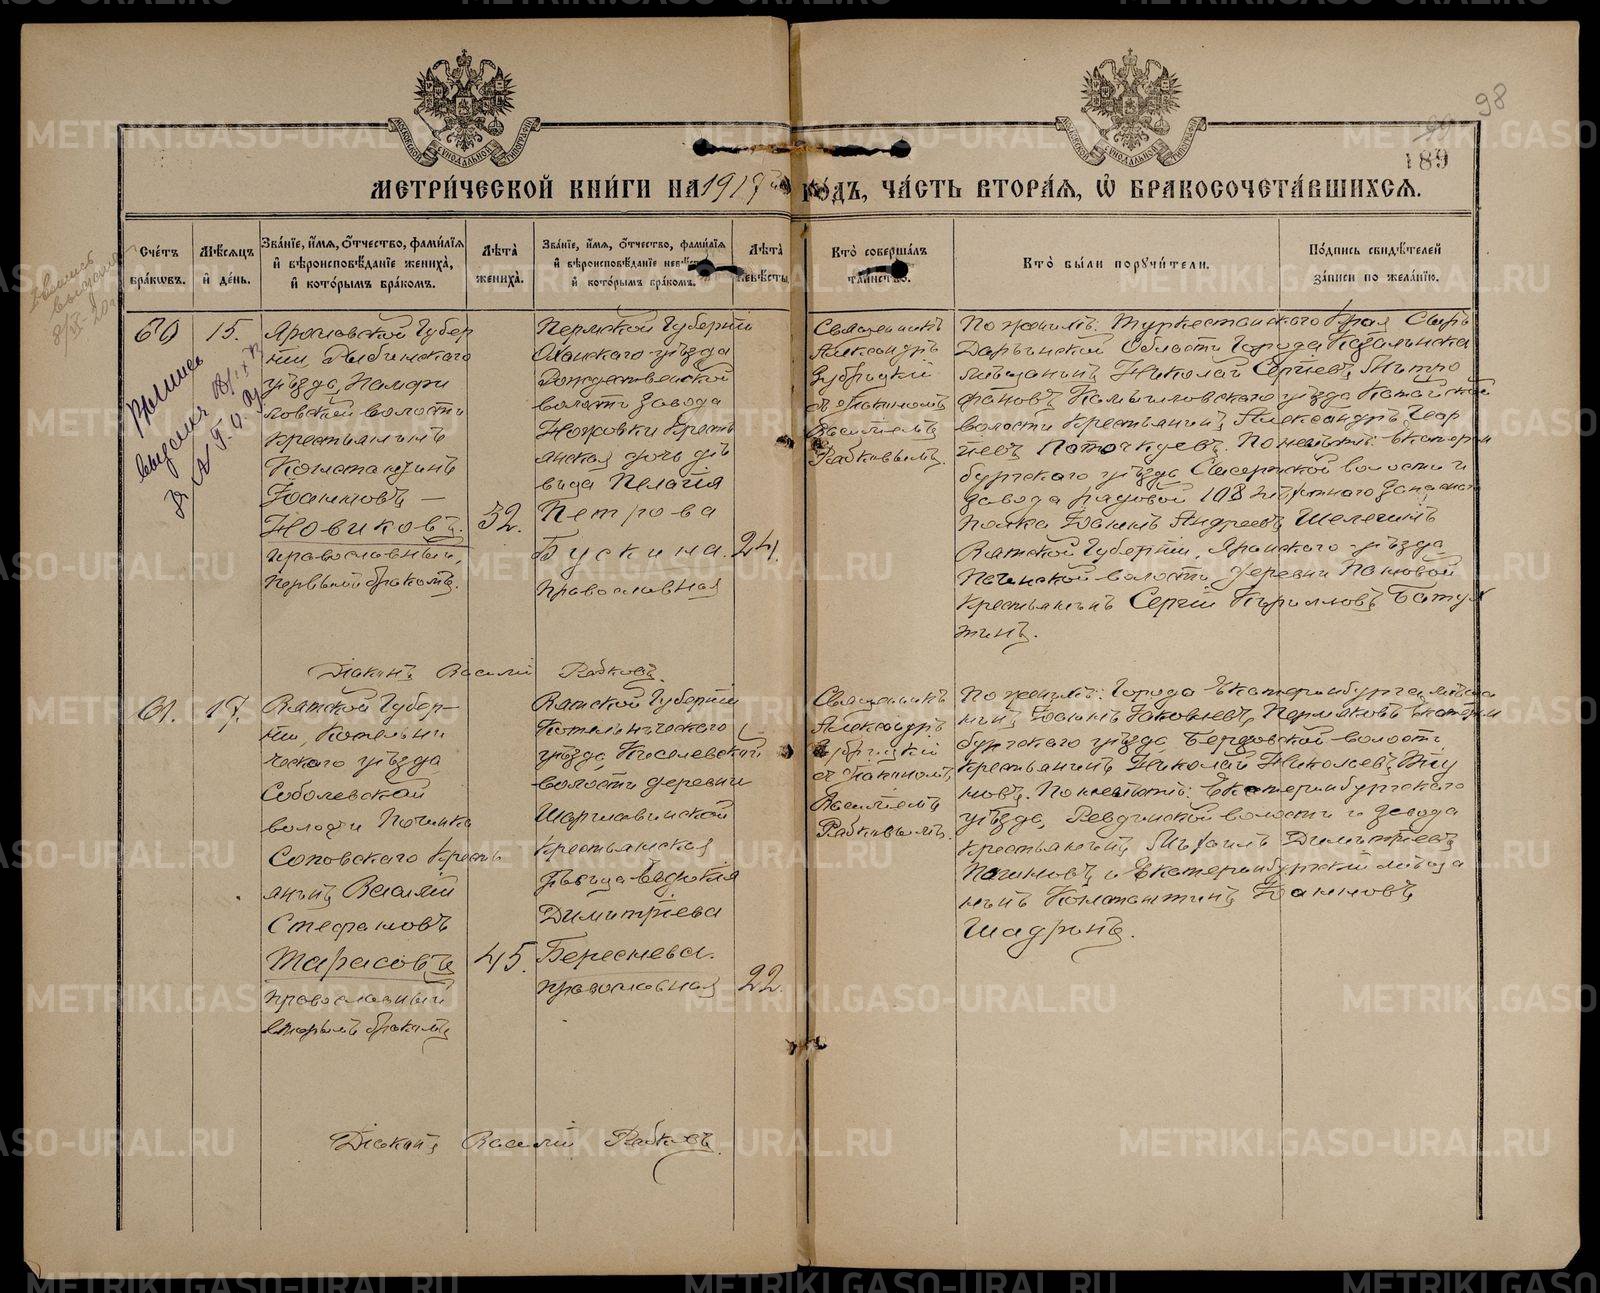 98
189
МЕТРИ́ЧЕСКОЙ КНИ́ГИ НА 1917 й ГО́ДЪ, ЧА́СТЬ ВТОРА́Я, Ѡ БРАКОСОЧЕТА́ВШИХСЯ.
Сче́тъ бра́кѡвъ.
Мѣ́сяцъ и҆ де́нь.
Зва́нїе, и҆́мя, ѻ҆́тчество, фами́лїя и҆ вѣроисповѣ́данїе жениха̀, и҆ кото́рымъ бра́комъ.
Лѣ́та жениха̀.
Зва́нїе, и҆́мя, ѻ҆́тчество, фами́лїя и҆ вѣроисповѣ́данїе невѣ́сты, и҆ кото́рымъ бра́комъ.
Лѣ́та невѣ́сты.
Кто̀ соверша́лъ та́инство.
Кто̀ бы́ли порꙋчи́тели.
По́дпись свидѣ́телей за́писи по жела́нїю.
60
15.
Ярославской Губер
нїи, Рыбинскаго
уѣзда,
ловской волости
крестьянинъ
Константинъ
Іоанновъ –
Новиковъ.
православный,
первымъ бракомъ.
32.
Пермской Губернїи
Оханскаго уѣзда
Рождественской
волости завода
Ножовки кресть
янская дочь дѣ
вица Пелагія
Петрова
Бускина.
православная
24.
Священникъ
Александръ
Зубрицкій
съ Діакономъ
Василіемъ
Рабковымъ.
По женихѣ: Туркестанскаго Края Сыръ
Дарьинской Области Города Казалинска
мѣщанинъ Николай Сергіевъ Митро
фановъ Камышловскаго уѣзда Катайской
волости крестьянинъ Александръ Геор
гіевъ По невѣстѣ: Екатерин
бургскаго уѣзда Сысертской волости и
завода рядовой 108 пѣхотнаго запаснаго
полка Іоаннъ Андреевъ Шелегинъ
Вятской Губернїи, Яранскаго уѣзда
волости деревни
крестьянинъ Сергій Кирилловъ Бату
Діаконъ Василій Рабковъ.
61.
17.
Вятской Губер–
нїи, Котельни
ческаго уѣзда
Соболевской
волости Починка
Соповскаго кресть
янинъ Василій
Стефановъ
Тарасовъ
православный
вторымъ бракомъ
45.
Вятской Губернїи
Котельническаго
уѣзда Киселевской
волости деревни
крестьянская
дѣвица Евдокія
Димитріева
Береснева.
православная
22.
Священникъ
Александръ
Зубрицкій
съ Діакономъ
Василіемъ
Рабковымъ.
По женихѣ: Города Екатеринбурга мѣща
нинъ Іоаннъ Іаковлевъ Пермяковъ Екатерин
бургскаго уѣзда Бердовской волости
крестьянинъ Николай Николаевъ
новъ. По невѣстѣ: Екатеринбургскаго
уѣзда, Ревдинской волости и завода
крестьянинъ Михаилъ Димитріевъ
и Екатеринбургскій мѣща
нинъ Константинъ Іоанновъ
Шадринъ.
Діаконъ Василій Рабковъ.
METRIKI.GASO-URAL.RU